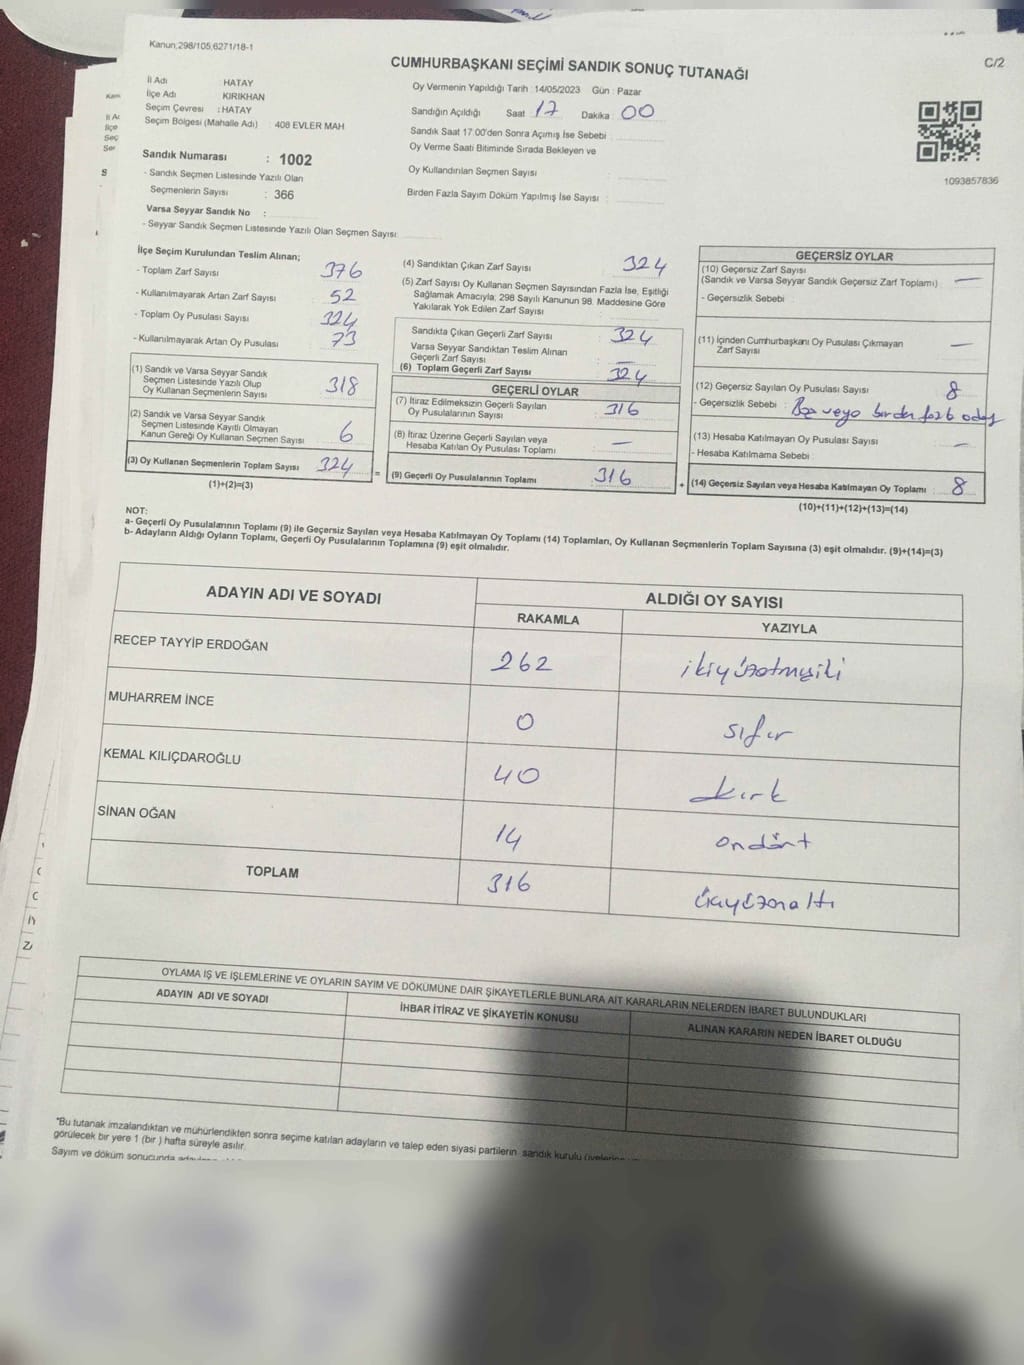 Kanun;298/105,6271/18-1
C/2
CUMHURBAŞKANI SEÇİMİ SANDIK SONUÇ TUTANAĞI
İl Adı HATAY
İlçe Adı KIRIKHAN
Seçim Çevresi : HATAY
Seçim Bölgesi (Mahalle Adı) : 408 EVLER MAH
Oy Vermenin Yapıldığı Tarih : 14/05/2023 Gün : Pazar
Sandığın Açıldığı Saat 17 Dakika 00
Sandık Saat 17:00'den Sonra Açımış İse Sebebi :
Oy Verme Saati Bitiminde Sırada Bekleyen ve
Oy Kullandırılan Seçmen Sayısı :
Birden Fazla Sayım Döküm Yapılmış İse Sayısı :
1093857836
Sandık Numarası : 1002
- Sandık Seçmen Listesinde Yazılı Olan
Seçmenlerin Sayısı : 366
Varsa Seyyar Sandık No :
- Seyyar Sandık Seçmen Listesinde Yazılı Olan Seçmen Sayısı:
İlçe Seçim Kurulundan Teslim Alınan;
- Toplam Zarf Sayısı 376
- Kullanılmayarak Artan Zarf Sayısı 52
- Toplam Oy Pusulası Sayısı 324
- Kullanılmayarak Artan Oy Pusulası 73
(1) Sandık ve Varsa Seyyar Sandık
Seçmen Listesinde Yazılı Olup
Oy Kullanan Seçmenlerin Sayısı 318
(2) Sandık ve Varsa Seyyar Sandık
Seçmen Listesinde Kayıtlı Olmayan
Kanun Gereği Oy Kullanan Seçmen Sayısı 6
(3) Oy Kullanan Seçmenlerin Toplam Sayısı 324
(1)+(2)=(3)
=
(4) Sandıktan Çıkan Zarf Sayısı 324
(5) Zarf Sayısı Oy Kullanan Seçmen Sayısından Fazla İse, Eşitliği
Sağlamak Amacıyla; 298 Sayılı Kanunun 98. Maddesine Göre
Yakılarak Yok Edilen Zarf Sayısı :
Sandıkta Çıkan Geçerli Zarf Sayısı 324
Varsa Seyyar Sandıktan Teslim Alınan
Geçerli Zarf Sayısı —
(6) Toplam Geçerli Zarf Sayısı 324
GEÇERLİ OYLAR
(7) İtiraz Edilmeksizin Geçerli Sayılan
Oy Pusulalarının Sayısı 316
(8) İtiraz Üzerine Geçerli Sayılan veya
Hesaba Katılan Oy Pusulası Toplamı —
(9) Geçerli Oy Pusulalarının Toplamı 316
+
GEÇERSİZ OYLAR
(10) Geçersiz Zarf Sayısı
(Sandık ve Varsa Seyyar Sandık Geçersiz Zarf Toplamı) —
- Geçersizlik Sebebi :
(11) İçinden Cumhurbaşkanı Oy Pusulası Çıkmayan
Zarf Sayısı —
(12) Geçersiz Sayılan Oy Pusulası Sayısı 8
- Geçersizlik Sebebi : Boş veya birden fazla aday
(13) Hesaba Katılmayan Oy Pusulası Sayısı —
- Hesaba Katılmama Sebebi
(14) Geçersiz Sayılan veya Hesaba Katılmayan Oy Toplamı : 8
(10)+(11)+(12)+(13)=(14)
NOT:
a- Geçerli Oy Pusulalarının Toplamı (9) ile Geçersiz Sayılan veya Hesaba Katılmayan Oy Toplamı (14) Toplamları, Oy Kullanan Seçmenlerin Toplam Sayısına (3) eşit olmalıdır. (9)+(14)=(3)
b- Adayların Aldığı Oyların Toplamı, Geçerli Oy Pusulalarının Toplamına (9) eşit olmalıdır.
ADAYIN ADI VE SOYADI
ALDIĞI OY SAYISI
RAKAMLA YAZIYLA
RECEP TAYYİP ERDOĞAN 262 ikiyüzatmışiki
MUHARREM İNCE 0 sıfır
KEMAL KILIÇDAROĞLU 40 kırk
SİNAN OĞAN 14 ondört
TOPLAM 316 üçyüzonaltı
OYLAMA İŞ VE İŞLEMLERİNE VE OYLARIN SAYIM VE DÖKÜMÜNE DAİR ŞİKAYETLERLE BUNLARA AİT KARARLARIN NELERDEN İBARET BULUNDUKLARI
ADAYIN ADI VE SOYADI İHBAR İTİRAZ VE ŞİKAYETİN KONUSU ALINAN KARARIN NEDEN İBARET OLDUĞU
*Bu tutanak imzalandıktan ve mühürlendikten sonra seçime katılan adayların ve talep eden siyasi partilerin sandık kurulu
görülecek bir yere 1 (bir ) hafta süreyle asılır.
Sayım ve döküm sonucunda